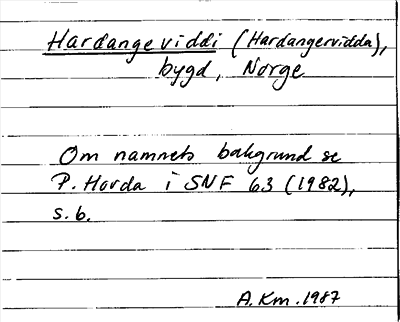 Hardangeviddi (Hardangervidda),
bygd, Norge
Om namnets bakgrund se
P. Hovda i SNF 63 (1982),
s. 6.
A.Km. 1987